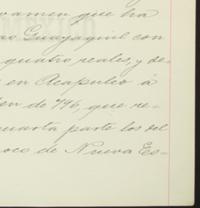 vamen que ha
as Guayaquil con
quatro reales, y de-
en Acapulco á
en de 796, que re-
quarta parte los del
oco de Nueva Es-